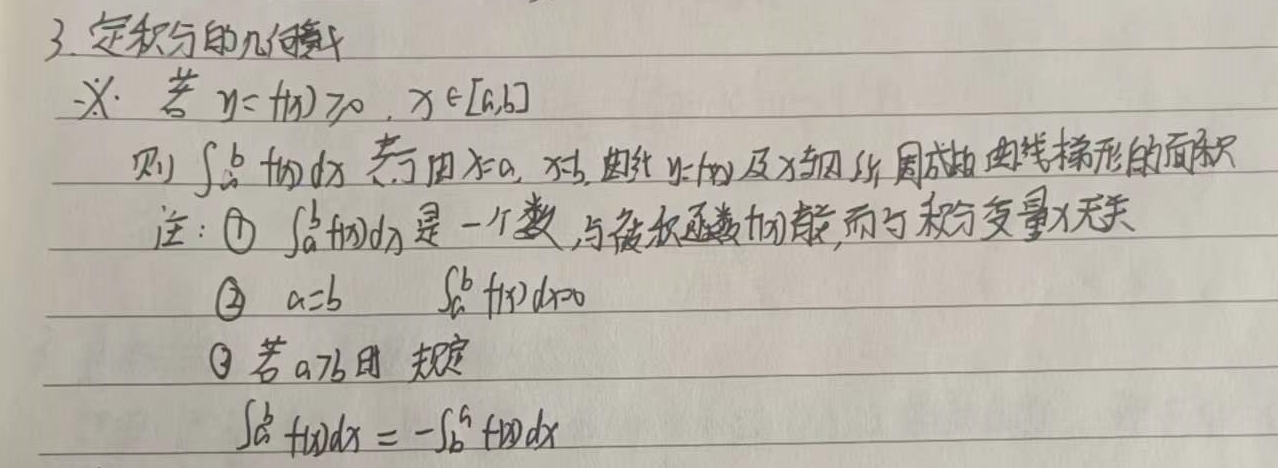 3. 定积分的几何意义
※. 若 y=f(x)≥0, x∈[a,b]
则 ∫ₐᵇ f(x)dx 表示由 x=a, x=b, 曲线 y=f(x) 及 x轴所围成的曲线梯形的面积
注: ① ∫ₐᵇ f(x)dx 是一个数, 与被积函数f(x)有关, 而与积分变量x无关
② a=b ∫ₐᵇ f(x)dx=0
③ 若 a>b时 规定
∫ₐᵇ f(x)dx = -∫_bᵃ f(x)dx